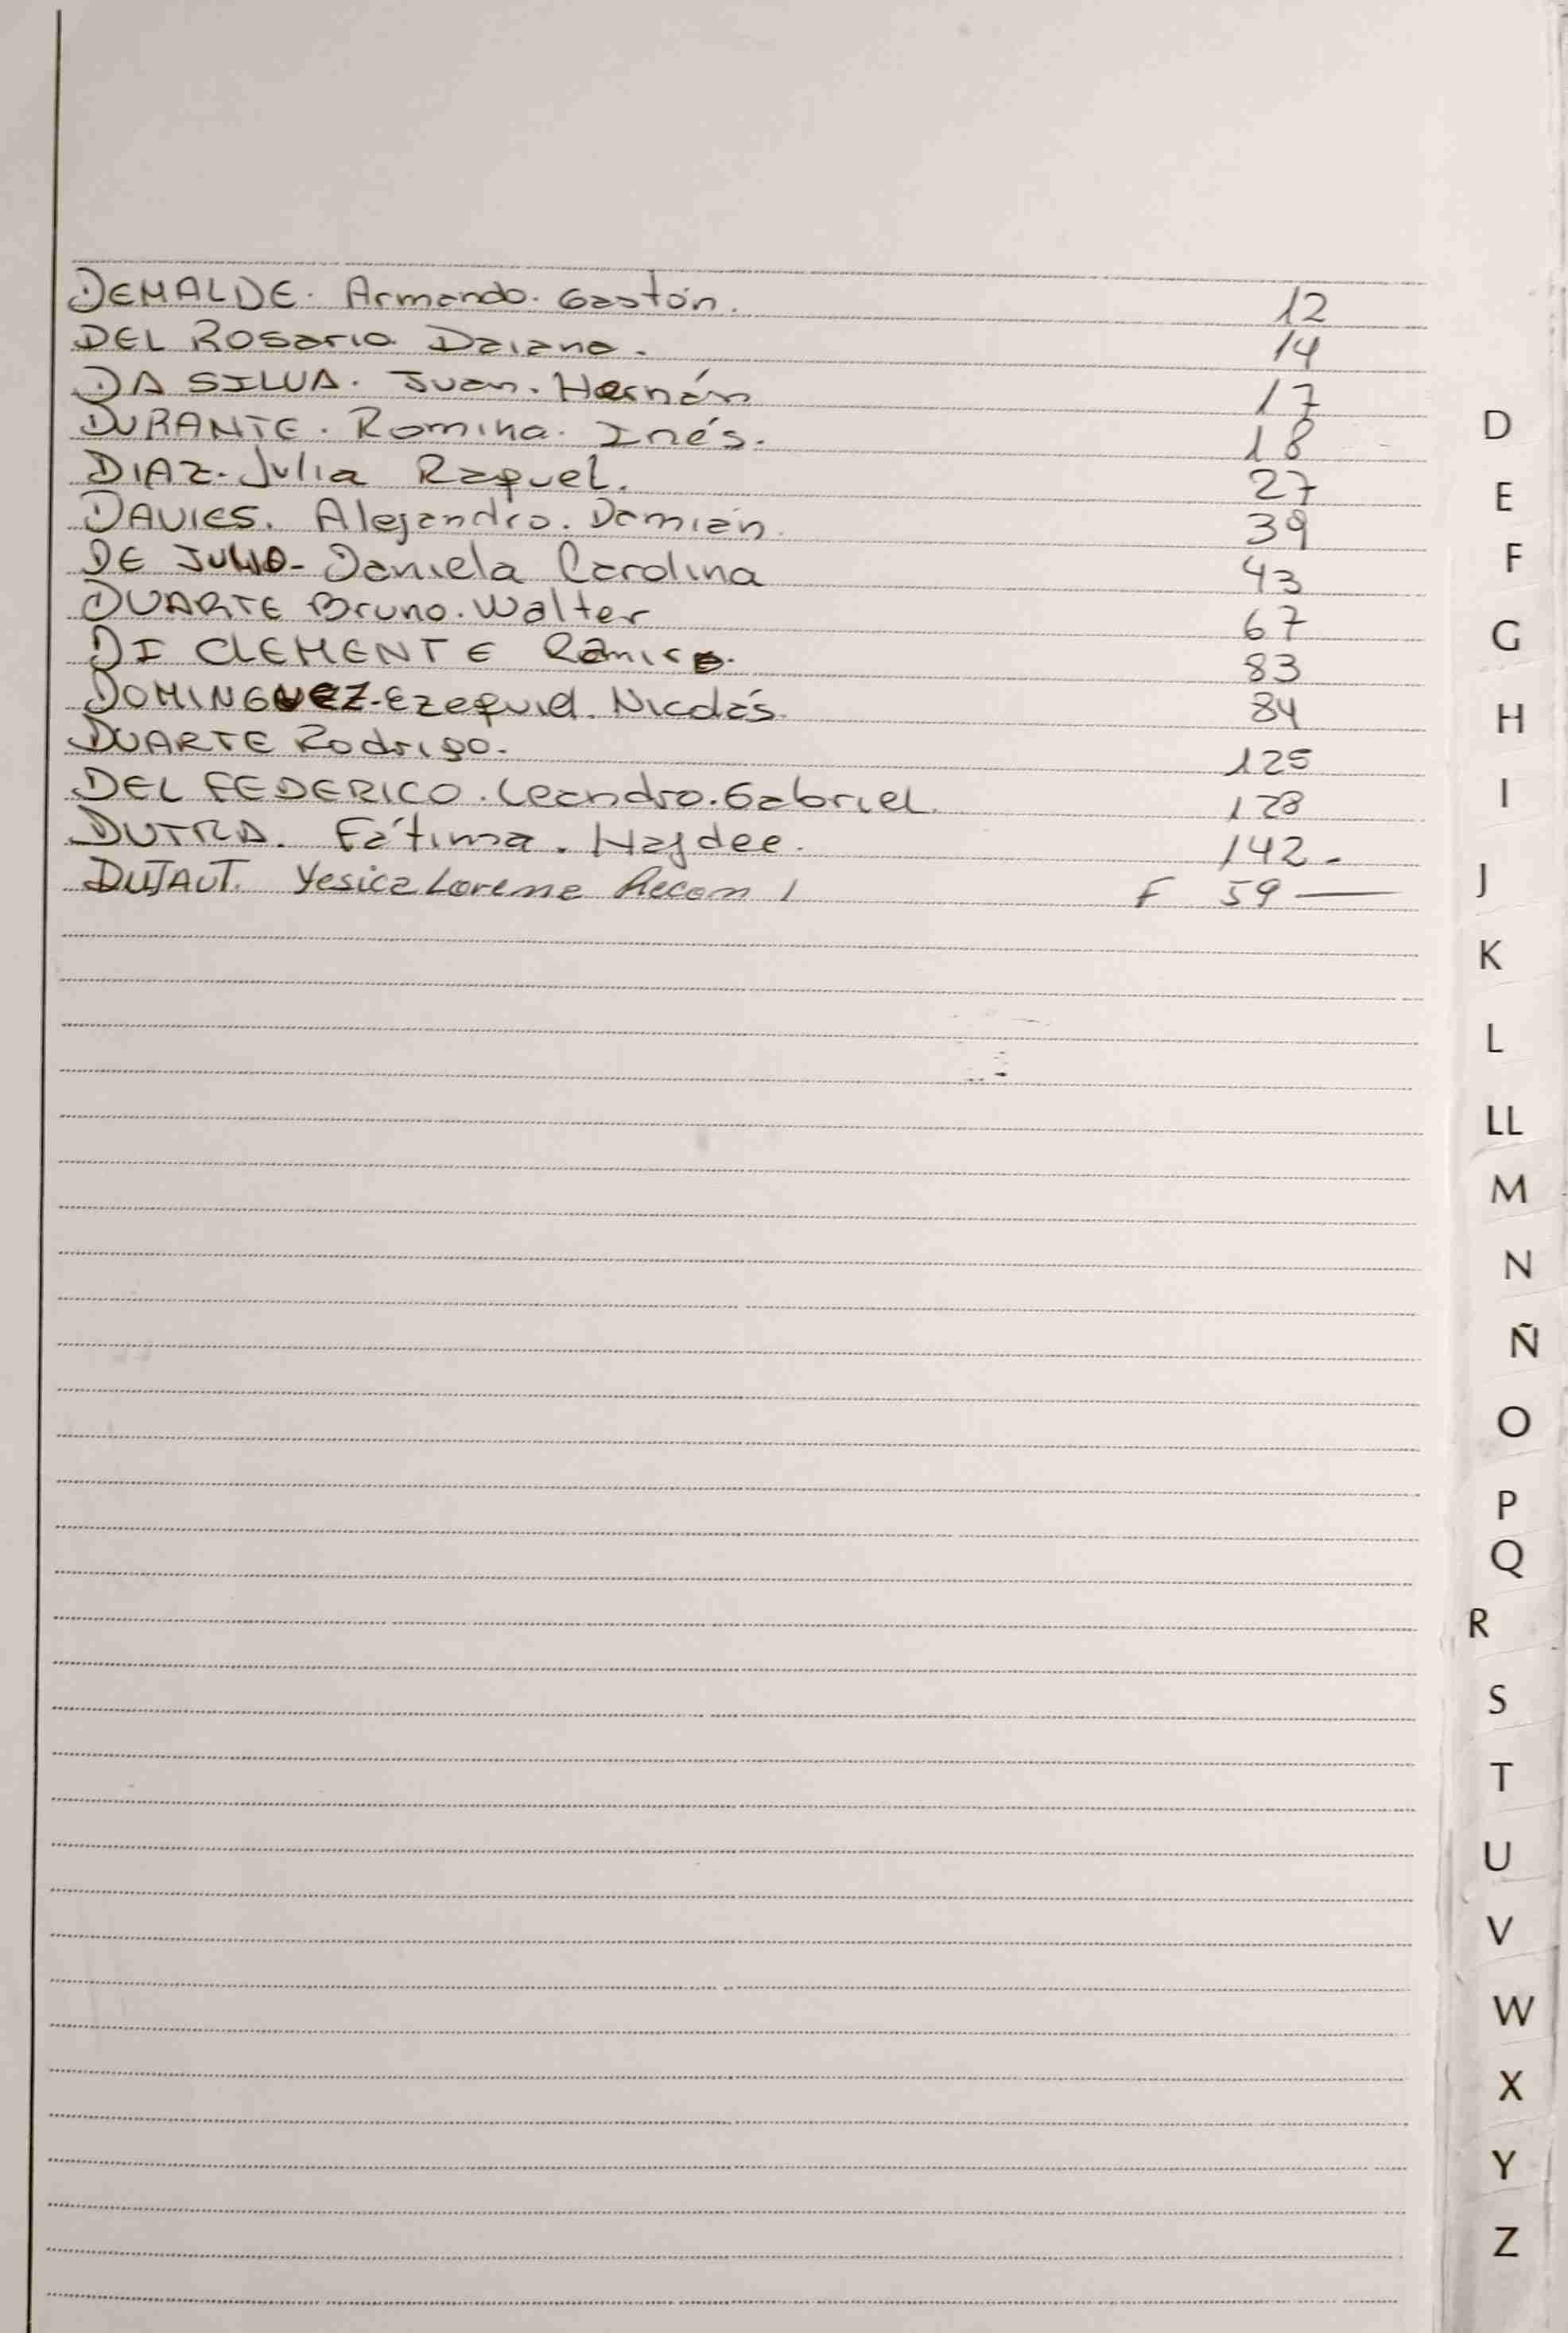 DEMALDE. Armando. Gastón. 12
DEL ROSario Daiana. 14
DA SILVA. Juan. Hernán 17
DURANTE. Romina. Inés. 18
DIAZ. Julia Raquel. 27
DAVIES. Alejandro. Damián. 39
DE JULIO- Daniela Carolina 43
DUARTE Bruno. Walter 67
DI CLEMENTE Ramiro. 83
DOMINGUEZ-Ezequiel. Nicolás. 84
DUARTE Rodrigo. 125
DEL FEDERICO. Leandro. Gabriel. 128
DUTRA. Fátima. Haydee. 142-
DUJAUT. Yesica Lorena Recom 1 F 59 —
D
E
F
G
H
I
J
K
L
LL
M
N
Ñ
O
P
Q
R
S
T
U
V
W
X
Y
Z